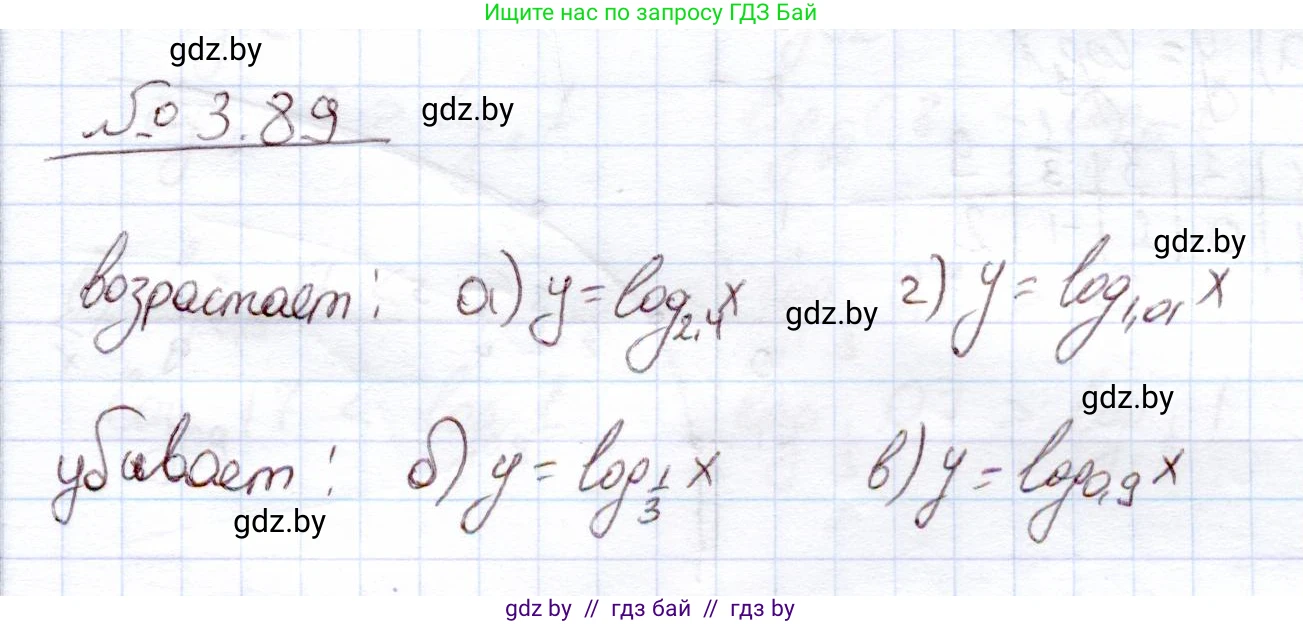 Ищите нас по запросу ГДЗ Бай
gdz.by
№ 3.89 gdz.by
gdz.by
возрастает: а) y = log_{2,4} x gdz.by г) y = log_{1,01} x
gdz.by
убывает: б) y = log_{1/3} x в) y = log_{0,9} x
gdz.by
gdz by // гдз бай // гдз by